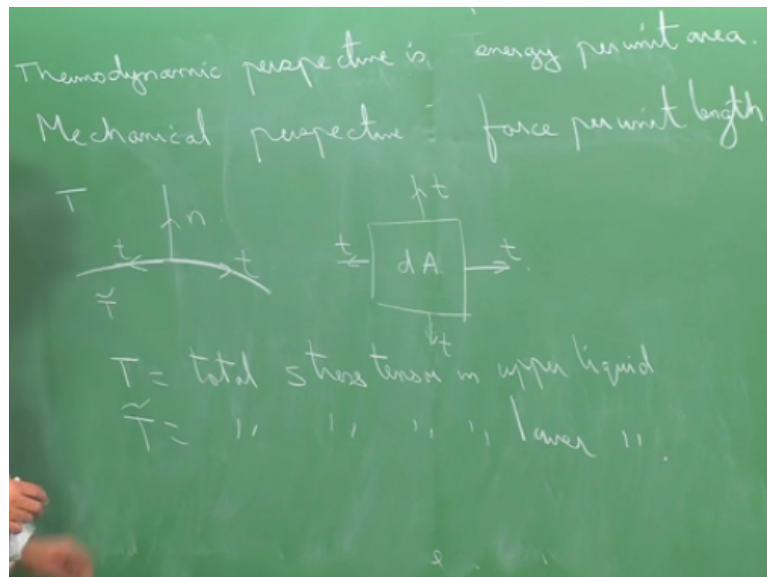 Thermodynamic perspective is energy per unit area.
Mechanical perspective - force per unit length
T
n
t
t
T̃
t
t
dA
t
t
T = total stress tensor in upper liquid
T̃ = ,, ,, ,, ,, lower ,, .